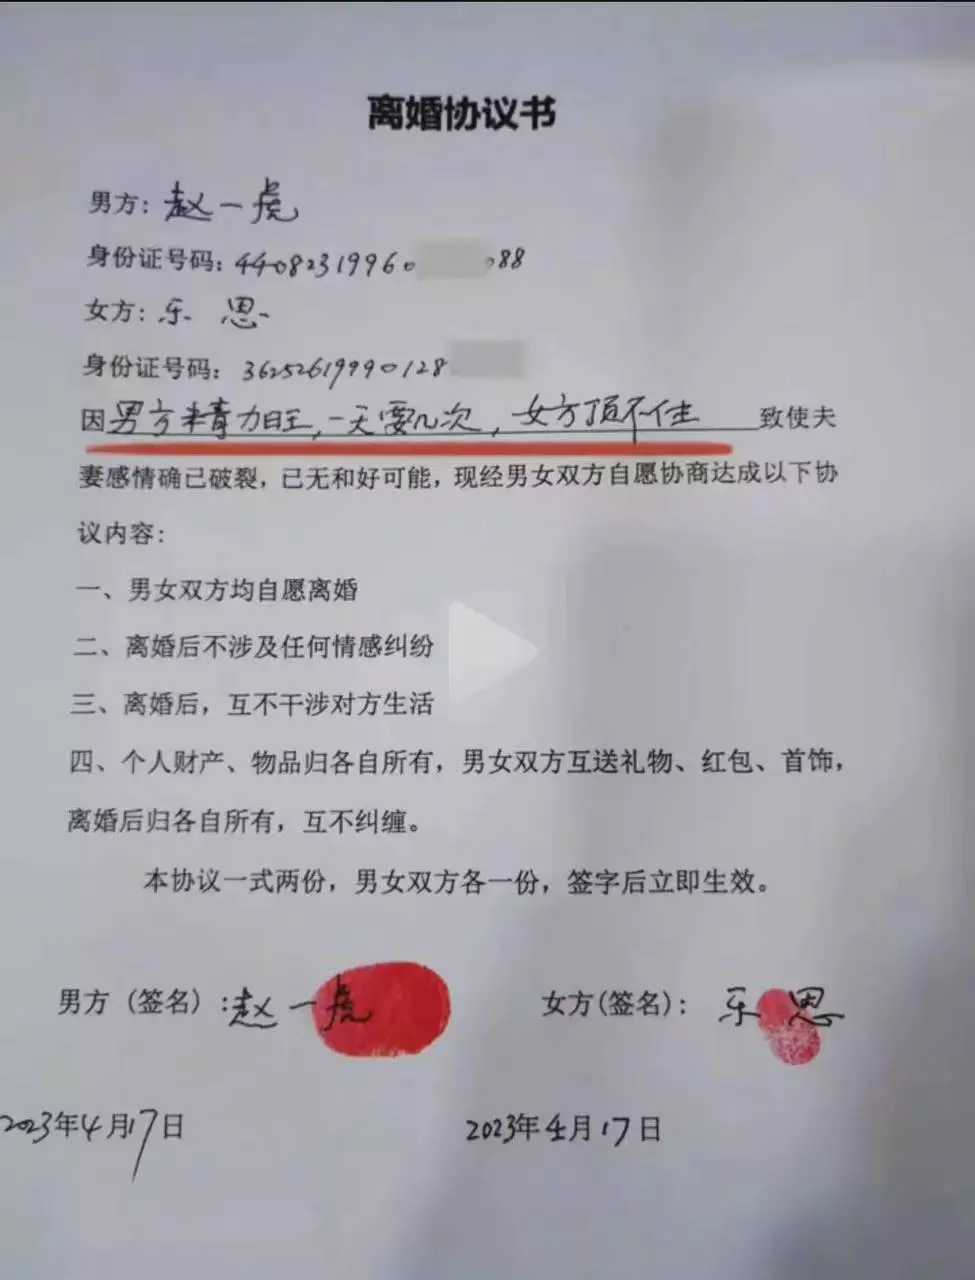 离婚协议书
男方: 赵一虎
身份证号码: 44082319960 088
女方: 乐 思
身份证号码: 36252619990128
因男方精力旺,一天要几次,女方顶不住 致使夫
妻感情确已破裂，已无和好可能，现经男女双方自愿协商达成以下协
议内容:
一、男女双方均自愿离婚
二、离婚后不涉及任何情感纠纷
三、离婚后，互不干涉对方生活
四、个人财产、物品归各自所有，男女双方互送礼物、红包、首饰，
离婚后归各自所有，互不纠缠。
本协议一式两份，男女双方各一份，签字后立即生效。
男方（签名）:赵一虎 女方(签名): 乐 思
2023年4月17日 2023年4月17日